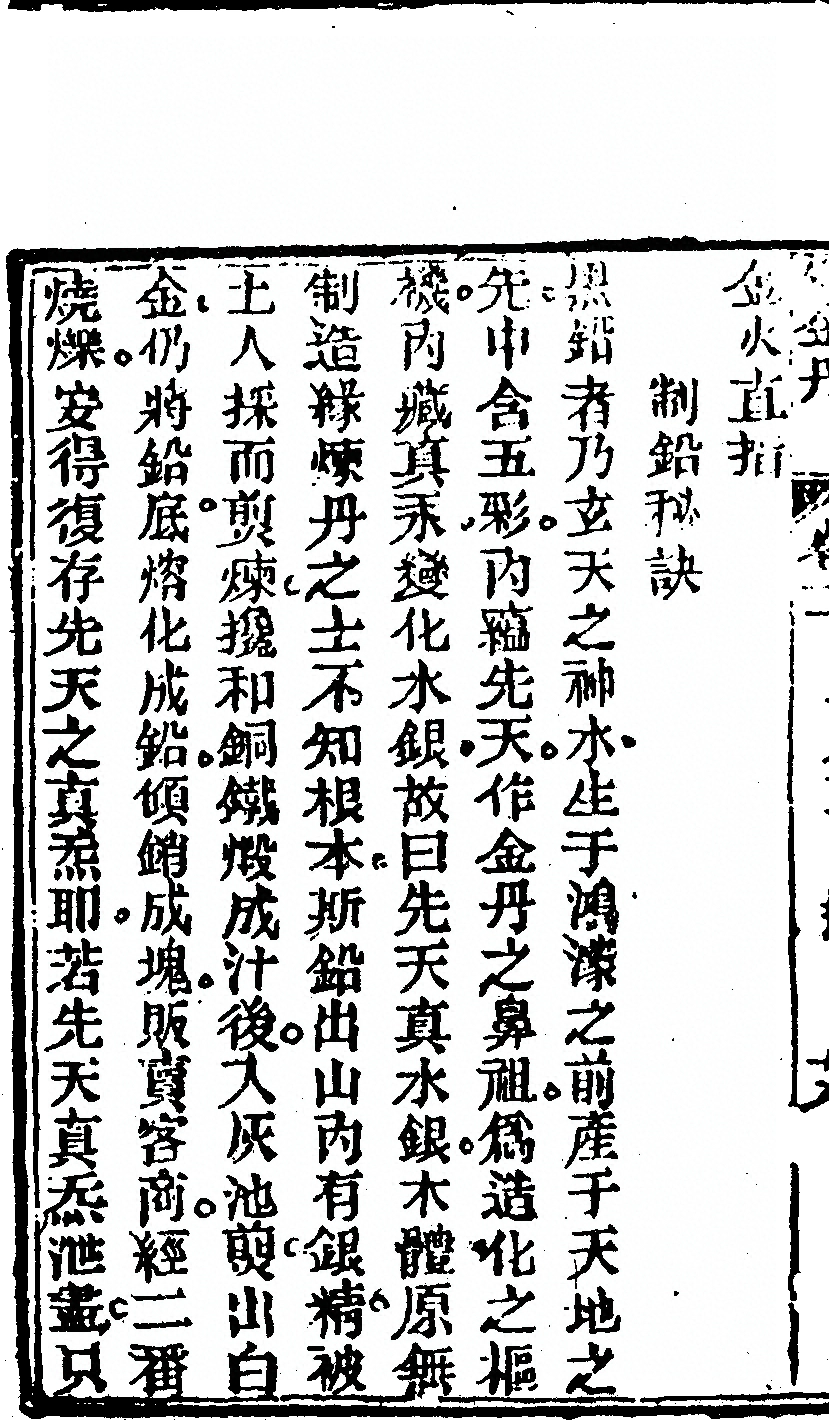 金火直指
制鉛秘訣
黑鉛者乃玄天之神水生于鴻濛之前產于天地之
先中含五彩內蘊先天作金丹之鼻祖爲造化之樞
機內藏真汞變化水銀故曰先天真水銀木體原無
制造緣煉丹之士不知根本斯鉛出山內有銀精被
土人採而煎煉攪和銅鐵煅成汁後入灰池煎出白
金仍將鉛底熔化成鉛傾銷成塊販賣客商經二番
燒爍安得復存先天之真炁耶若先天真炁泄盡只